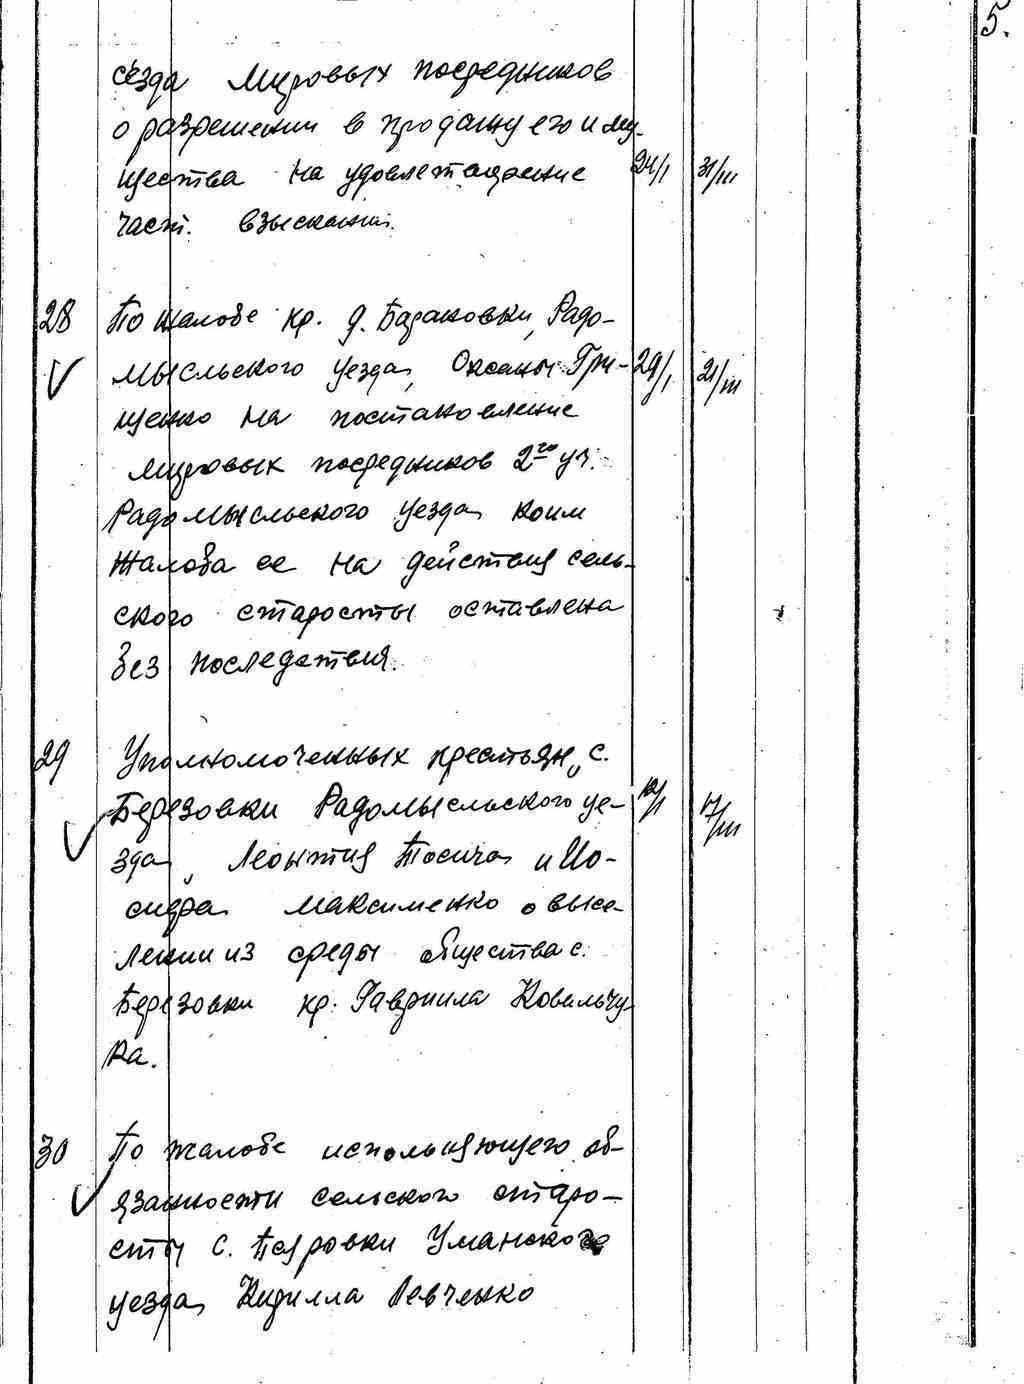 5.
сезда Мировых посредников
о разрешении в продажу его иму-
щества на удовлетворение 24/I 31/III
част. взыскания.
28 По жалобе кр. д. Бараковки, Радо-
мысльского уезда, Оксаны Гри- 29/I 21/III
щенко на постановление
мировых посредников 2го уч.
Радомысльского уезда коим
жалоба ее на действия сель-
ского старосты оставлена
без последствия.
29 Уполномоченных крестьян, с.
Березовки Радомысльского уе- 17/III
зда, Леонтия и Ио-
сифа Максименко о высе-
лении из среды общества с.
Березовки кр. Гавриила Ковальчу-
ка.
30 По жалобе исполняющего об-
язанности сельского старо-
сты с. Уманского
уезда Кирилла Левченко